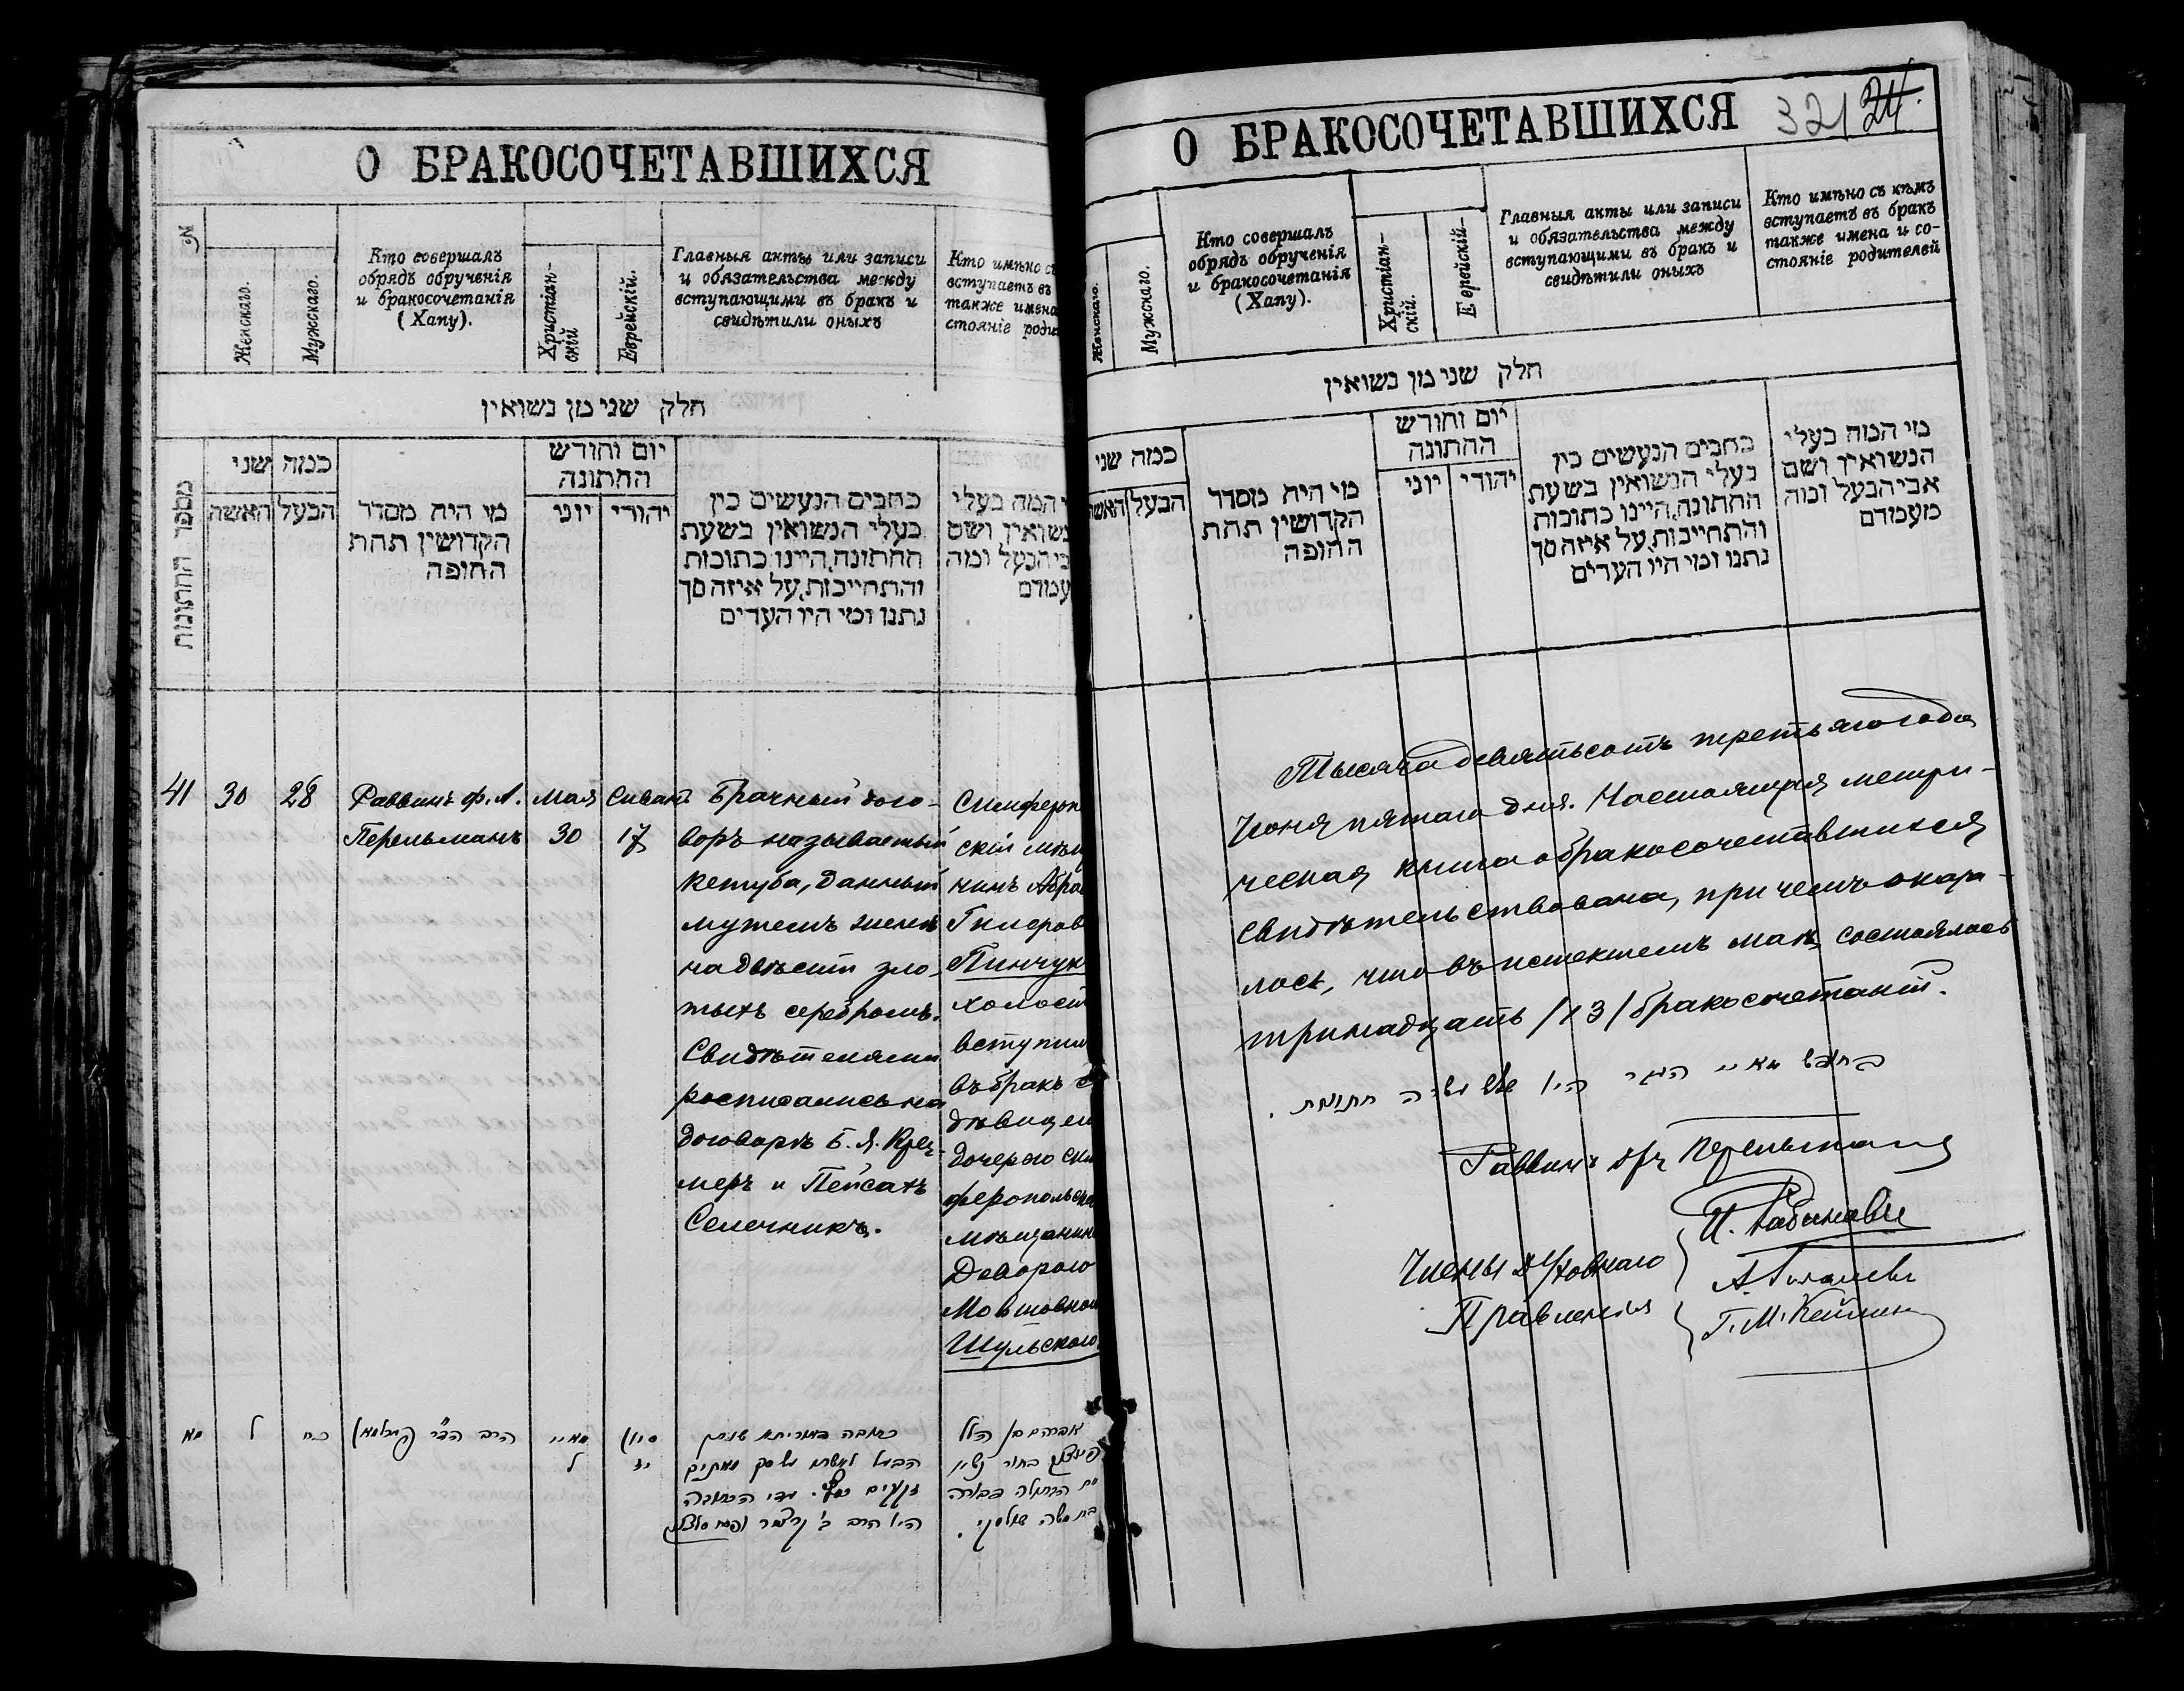 О БРАКОСОЧЕТАВШИХСЯ
№
Женскаго.
Мужскаго.
Кто совершалъ
обрядъ обрученія
и бракосочетанія
(Хапу).
Христіан-
скій
Еврейскій.
Главныя акты или записи
и обязательства между
вступающими въ бракъ и
свидѣтили оныхъ
Кто имѣно съ
вступаетъ въ
также имена
стояніе роди
חלק שני מן נשואין
מספר החתונות
כמה שני
האשה
הבעל
מי היה מסדר
הקדושין תחת
החופה
יום וחודש
החתונה
יוני
יהודי
כתבים הנעשים בין
בעלי הנשואין בשעת
החתונה, היינו כתובות
והתחייבות, על איזה סך
נתנו ומי היו העדים
י המה בעלי
נשואין ושם
בי הבעל ומה
עמדם
41 30 28
Раввинъ Ф. А.
Перельманъ
Мая
30
Сивана
17
Брачный дого-
воръ называемый
кетуба, данный
мужемъ женѣ
на двѣсти зло-
тыхъ серебромъ.
Свидѣтелями
росписались на
договорѣ Б. Я. Крец-
меръ и Пейсахъ
Селечникъ.
Симфероп
скій мѣщ
нинъ Абра
Гилеров
Пинчук
холост
вступил
въ бракъ с
дѣвицею
дочерью Сим
феропольска
мѣщанина
Деворою
Мовшовною
Шульскою
מא ל כח
הרב הד״ר פערלמאן
מאיי
ל
סיון
יז
כתובה דאוריתא שנתן
הבעל לאשתו על סך מאתים
זקוקים כסף. עדי הכתובה
היו הרב ב׳ קרצמר ופסח סלצניק
אברהם בן הלל
פינצוק בחור נשוי
עם הבתולה דבורה
בת משה שולסקי.
О БРАКОСОЧЕТАВШИХСЯ
321 24.
Женскаго.
Мужскаго.
Кто совершалъ
обрядъ обрученія
и бракосочетанія
(Хапу).
Христіан-
скій.
Еврейскій-
Главныя акты или записи
и обязательства между
вступающими въ бракъ и
свидѣтили оныхъ
Кто имѣно съ кѣмъ
вступаетъ въ бракъ
также имена и со-
стояніе родителей
חלק שני מן נשואין
כמה שני
האשה
הבעל
מי היה מסדר
הקדושין תחת
החופה
יום וחודש
החתונה
יוני
יהודי
כתבים הנעשים בין
בעלי הנשואין בשעת
החתונה, היינו כתובות
והתחייבות, על איזה סך
נתנו ומי היו העדים
מי המה בעלי
הנשואין ושם
אבי הבעל ומה
מעמדם
Тысяча девятьсотъ третьяго года
Іюня пятаго дня. Настоящая метри-
ческая книга о бракосочетавшихся
свидѣтельствована, при чемъ оказа-
лось, что въ истекшемъ маѣ состоялось
тринадцать /13/ бракосочетаній.
בחדש מאיי העבר היו שלש עשרה חתונות.
Раввинъ Ф. Перельманъ
Члены Духовнаго
Правленія
И. Рабиновичъ
Г. М. Кейлин